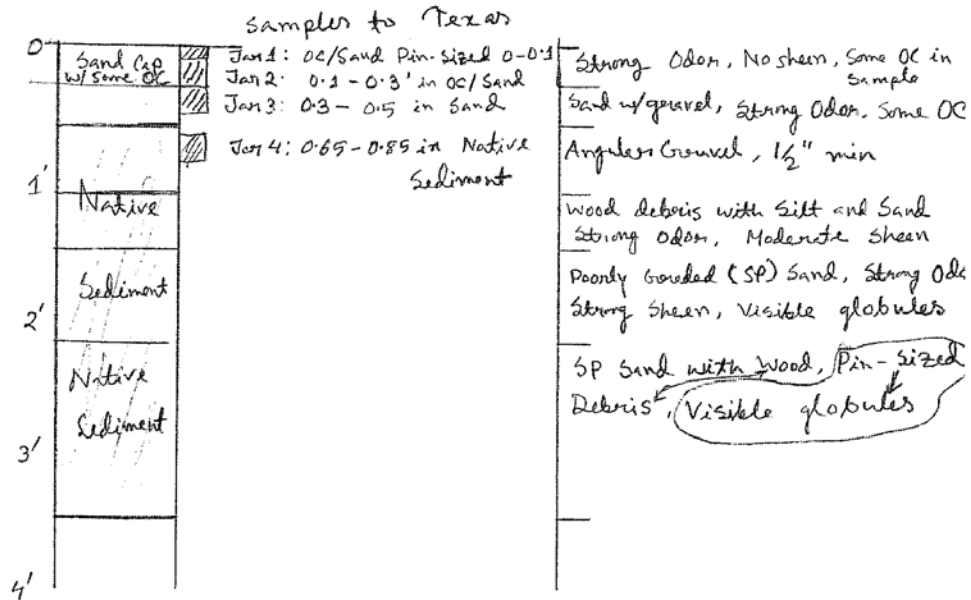 Samples to Texas
0
Sand Cap
w/ some OC
Jar 1: OC/Sand Pin-Sized 0-0.1
Jar 2: 0.1-0.3' in OC/Sand
Jar 3: 0.3-0.5 in Sand
Jar 4: 0.65-0.85 in Native
Sediment
1'
Native
Sediment
2'
Native
Sediment
3'
4'
Strong Odor, No sheen, Some OC in
Sample
Sand w/ gravel, Strong Odor, Some OC
Angular Gravel, 1/2" min
Wood debris with Silt and Sand
Strong Odor, Moderate Sheen
Poorly Graded (SP) Sand, Strong Odo
Strong Sheen, Visible globules
SP Sand with Wood, Pin-Sized
Debris, Visible globules